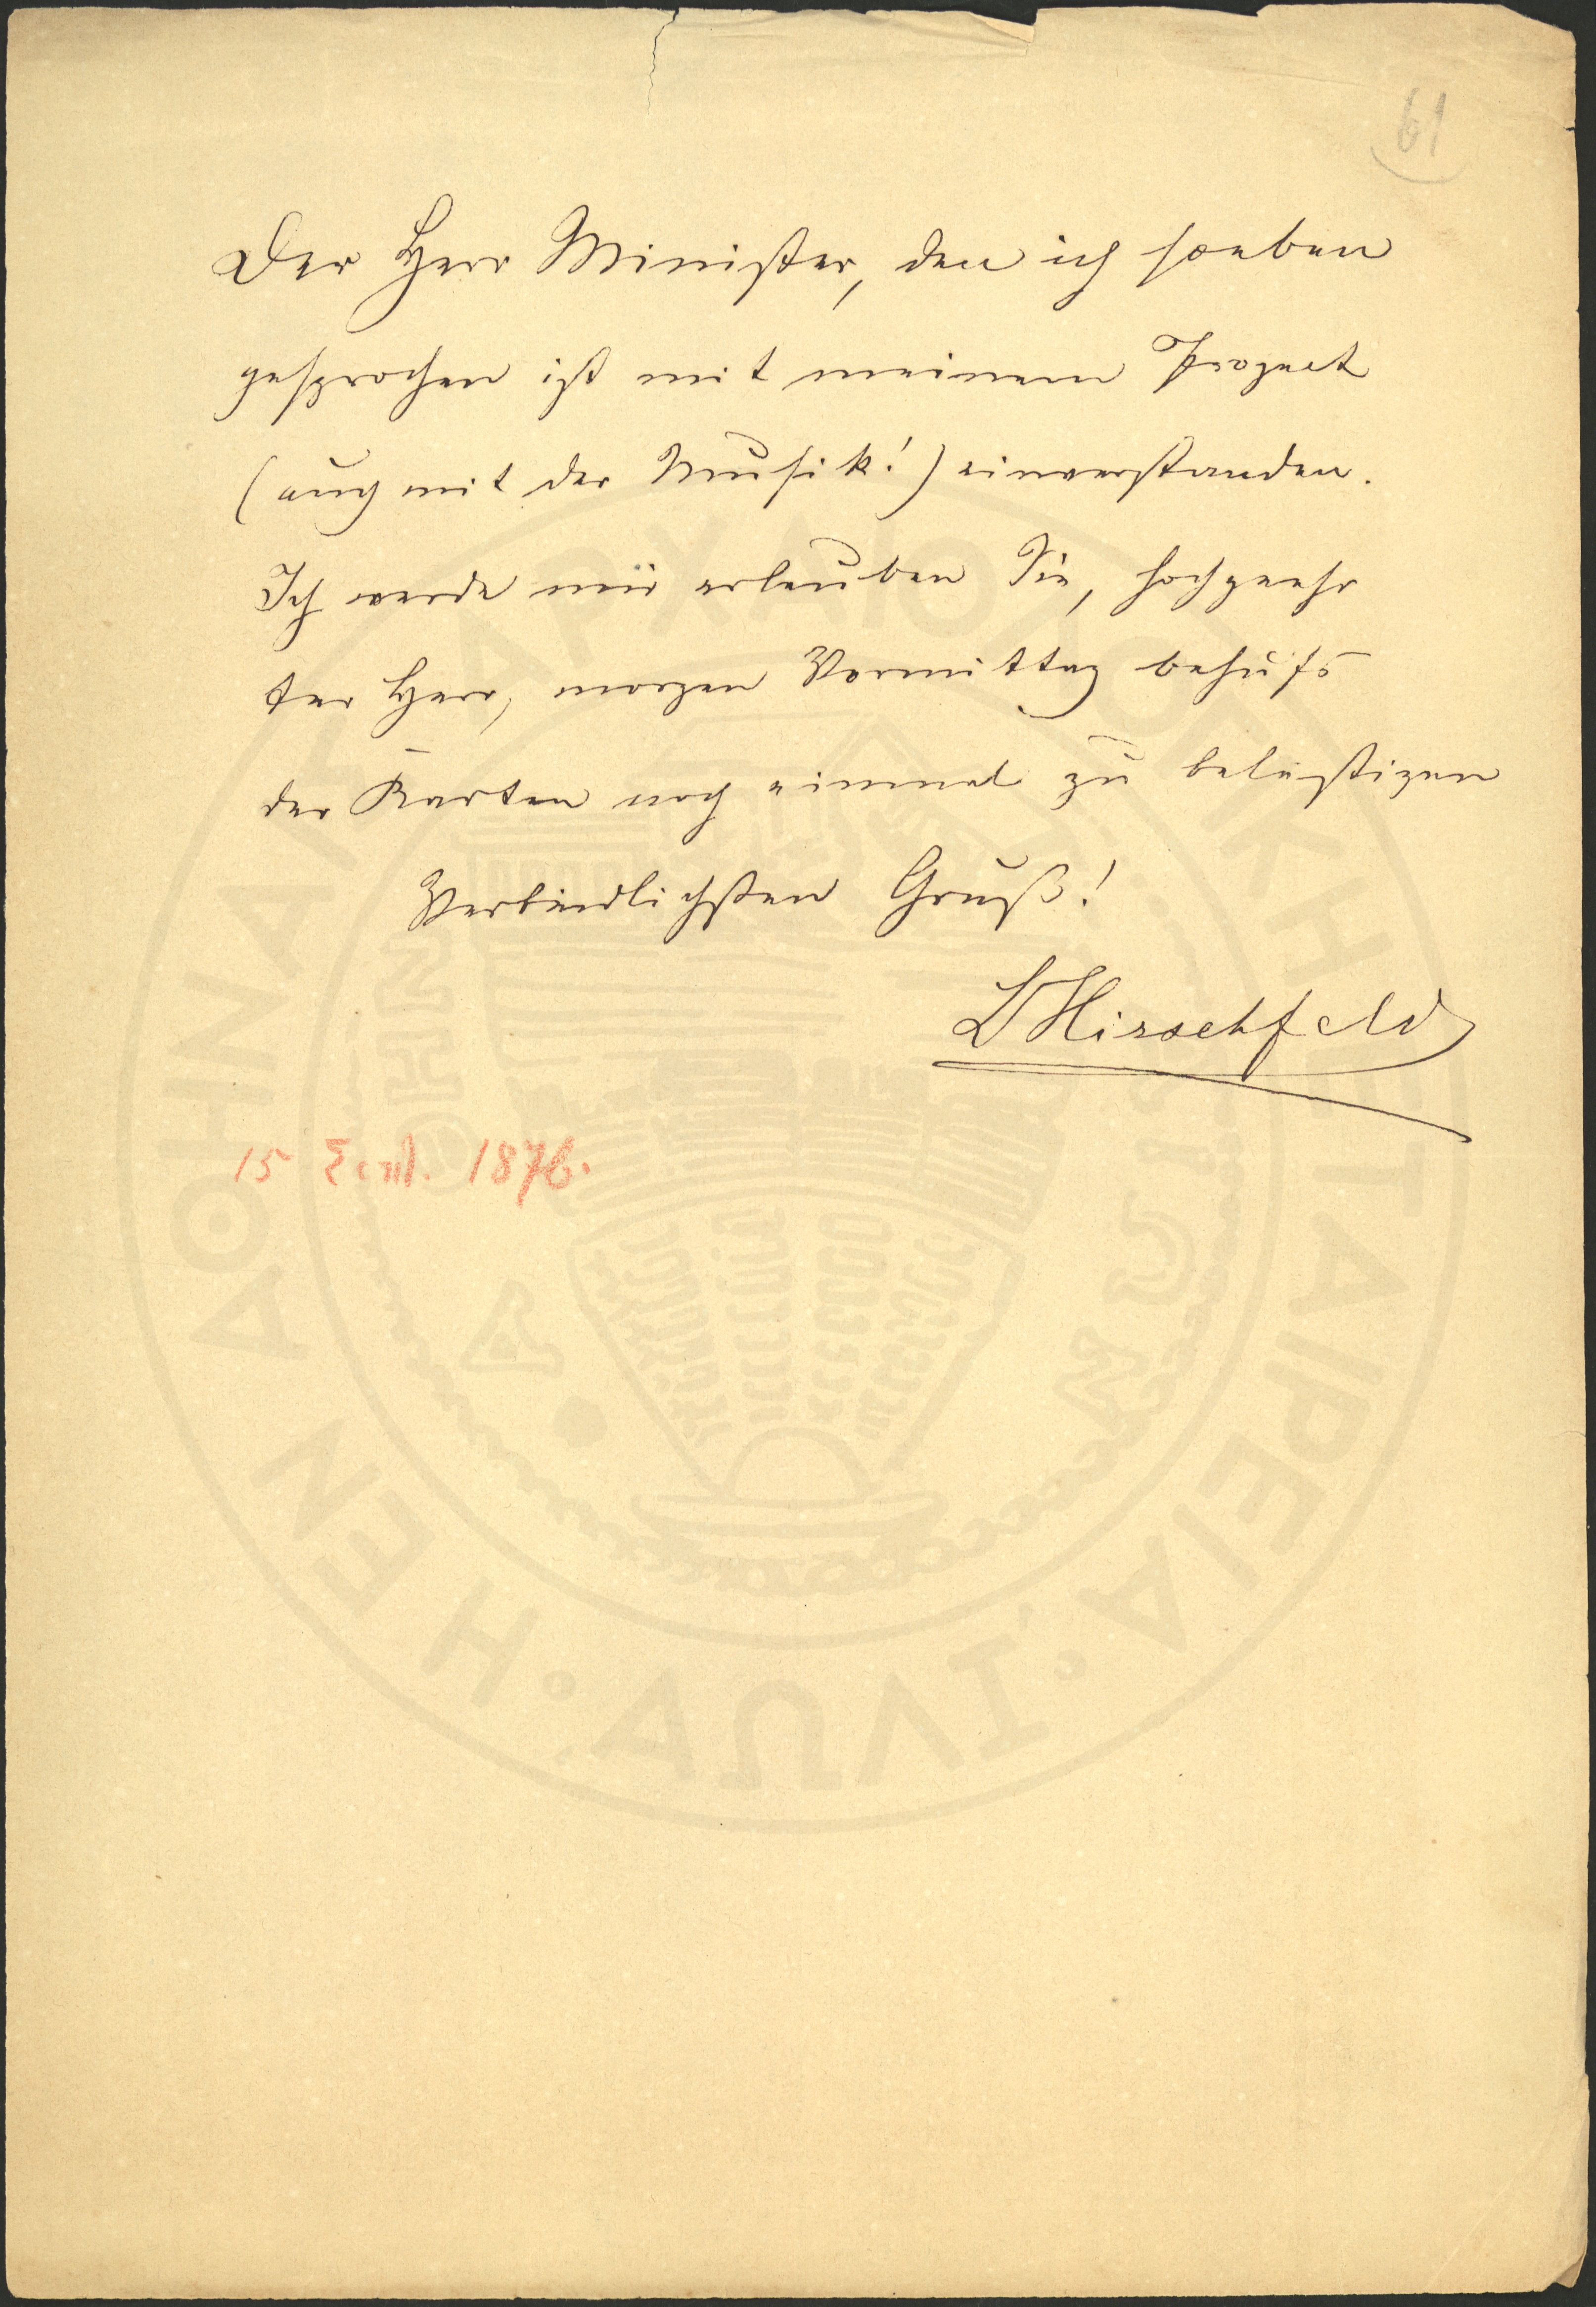 61
Der Herr Minister, den ich soeben
gesprochen ist mit meinem Project
(auch mit der Musik!) einverstanden.
Ich werde mir erlauben Sie, hochgeehr
ter Herr, morgen Vormittag behufs
der Karten noch einmal zu belästigen
Verbindlichsten Gruß!
Hirschfeld
15 Σεπτ. 1876.
Η ΕΝ ΑΘΗΝΑΙΣ ΑΡΧΑΙΟΛΟΓΙΚΗ ΕΤΑΙΡΕΙΑ